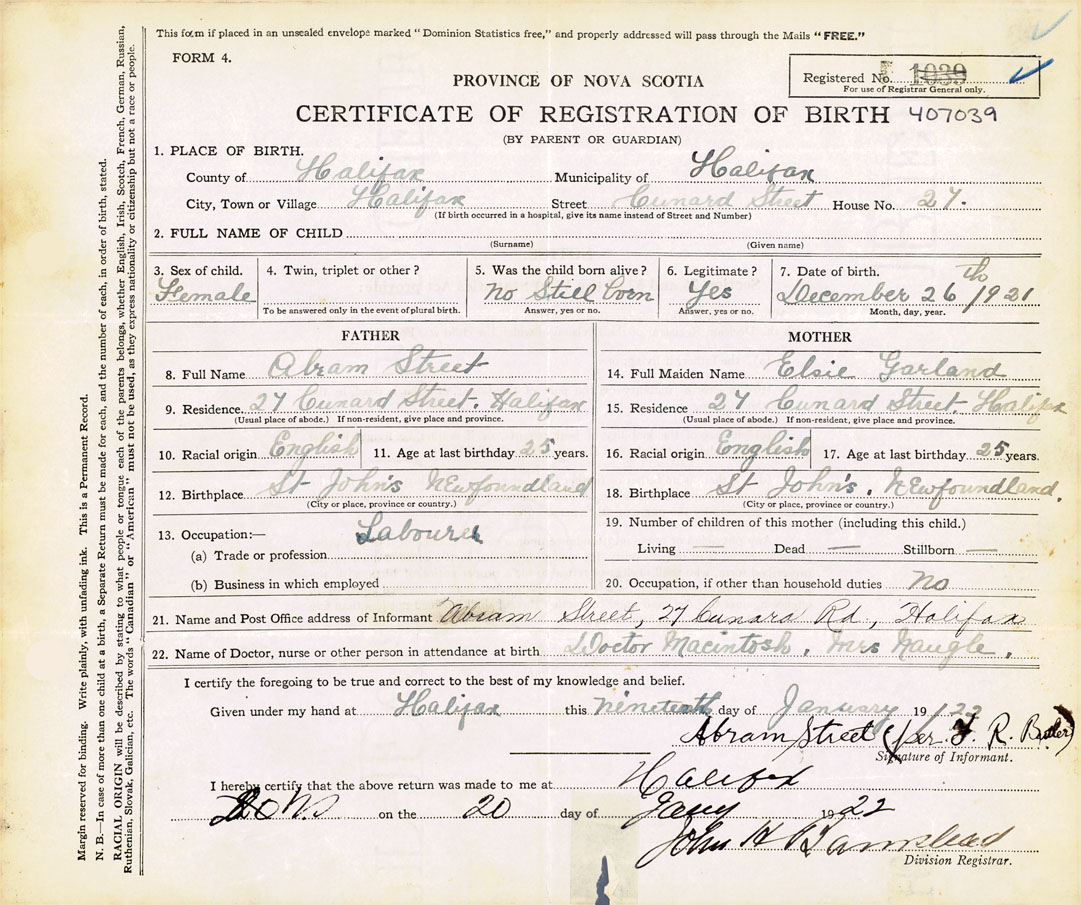 This form if placed in an unsealed envelope marked "Dominion Statistics free," and properly addressed will pass through the Mails "FREE."
FORM 4.
Registered No. 1039
For use of Registrar General only.
PROVINCE OF NOVA SCOTIA
CERTIFICATE OF REGISTRATION OF BIRTH 407039
(BY PARENT OR GUARDIAN)
1. PLACE OF BIRTH.
County of Halifax Municipality of Halifax
City, Town or Village Halifax Street Cunard Street House No. 27.
(If birth occurred in a hospital, give its name instead of Street and Number)
2. FULL NAME OF CHILD
(Surname) (Given name)
3. Sex of child. 4. Twin, triplet or other? 5. Was the child born alive? 6. Legitimate? 7. Date of birth.
Female No Still born Yes December 26th 1921
To be answered only in the event of plural birth. Answer, yes or no. Answer, yes or no. Month, day, year.
FATHER MOTHER
8. Full Name Abram Street 14. Full Maiden Name Elsie Garland
9. Residence 27 Cunard Street, Halifax 15. Residence 27 Cunard Street, Halifax
(Usual place of abode.) If non-resident, give place and province. (Usual place of abode.) If non-resident, give place and province.
10. Racial origin English 11. Age at last birthday 25 years. 16. Racial origin English 17. Age at last birthday 25 years.
12. Birthplace St John's Newfoundland 18. Birthplace St John's, Newfoundland.
(City or place, province or country.) (City or place, province or country.)
13. Occupation:— Labourer 19. Number of children of this mother (including this child.)
(a) Trade or profession Living — Dead — Stillborn —
(b) Business in which employed 20. Occupation, if other than household duties No
21. Name and Post Office address of Informant Abram Street, 27 Cunard Rd, Halifax
22. Name of Doctor, nurse or other person in attendance at birth Doctor Macintosh, Mrs Naugle.
I certify the foregoing to be true and correct to the best of my knowledge and belief.
Given under my hand at Halifax this nineteenth day of January 19/22
Abram Street (per. F. R. Butler)
Signature of Informant.
I hereby certify that the above return was made to me at Halifax
on the 20 day of Jany 1922
John H Barnstead
Division Registrar.
Margin reserved for binding. Write plainly, with unfading ink. This is a Permanent Record.
N. B.—In case of more than one child at a birth, a Separate Return must be made for each, and the number of each, in order of birth, stated.
RACIAL ORIGIN will be described by stating to what people or tongue each of the parents belongs, whether English, Irish, Scotch, French, German, Russian,
Ruthenian, Slovak, Galician, etc. The words "Canadian" or "American" must not be used, as they express nationality or citizenship but not a race or people.